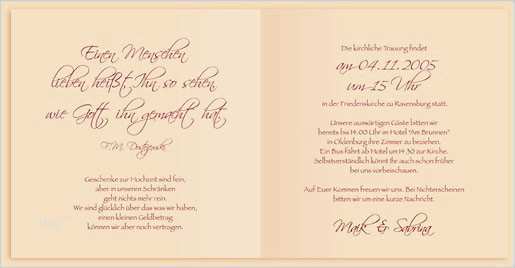 Einen Menschen
lieben heißt Ihn so sehen
wie Gott ihn gemacht hat
F.M. Dostojewski
Geschenke zur Hochzeit sind fein,
aber in unseren Schränken
geht nichts mehr rein.
Wir sind glücklich über das was wir haben,
einen kleinen Geldbetrag
können wir aber noch vertragen.
Die kirchliche Trauung findet
am 04.11.2005
um 15 Uhr
in der Friedenskirche zu Ravensburg statt.
Unsere auswärtigen Gäste bitten wir
bereits bis 14:00 Uhr im Hotel "Am Brunnen"
in Oldenburg ihre Zimmer zu beziehen.
Ein Bus fährt ab Hotel um 14:30 zur Kirche.
Selbstverständlich könnt Ihr auch schon früher
bei uns vorbeischauen.
Auf Euer Kommen freuen wir uns. Bei Nichterscheinen
bitten wir um eine kurze Nachricht.
Maik & Sabrina